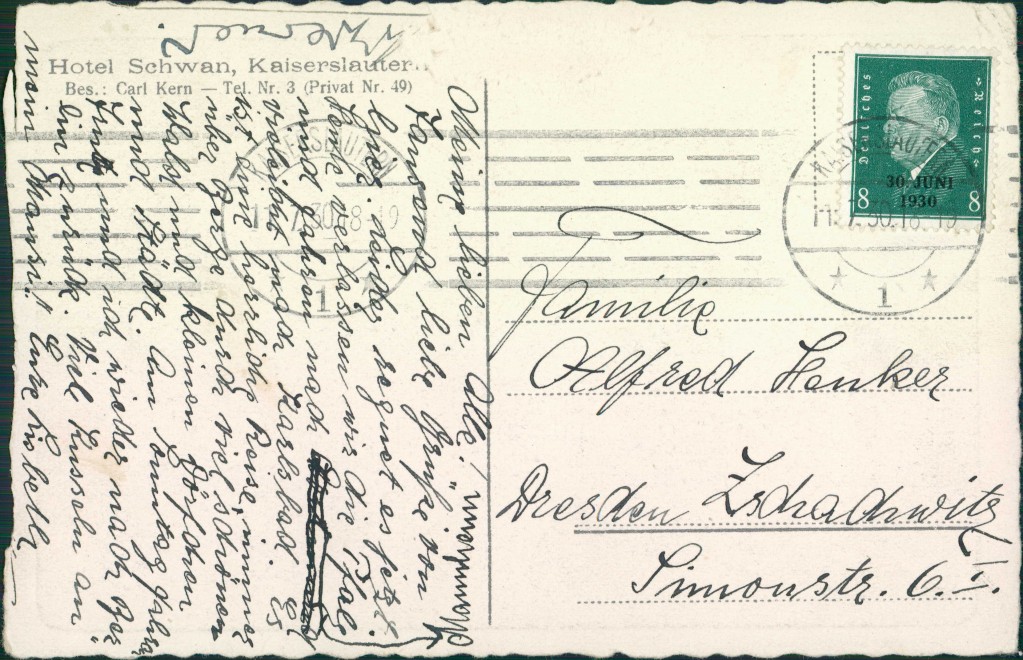 Hotel Schwan, Kaiserslautern
Bes.: Carl Kern — Tel. Nr. 3 (Privat Nr. 49)
Meine lieben Alle!
Tausend liebe Grüße von
hier. Leider regnet es jetzt.
Heute verlassen wir die Pfalz
und fahren nach
vielleicht nach Karlsbad. Es
ist eine herrliche Reise, immer
über Berge durch viel schönen
Wald und kleinen Dörfchen
und Städte. Am Sonntag fahren
und ich wieder nach
zurück. Viel Küsseln an
mein Mausi! Eure Liesbeth
Deutsches Reich
30. JUNI
1930
8 8
KAISERSLAUTERN
30.18-19
1
KAISERSLAUTERN
11.7.30.18-19
1
Familie
Alfred Henker
Dresden Zschachwitz
Simonstr. 6. I.